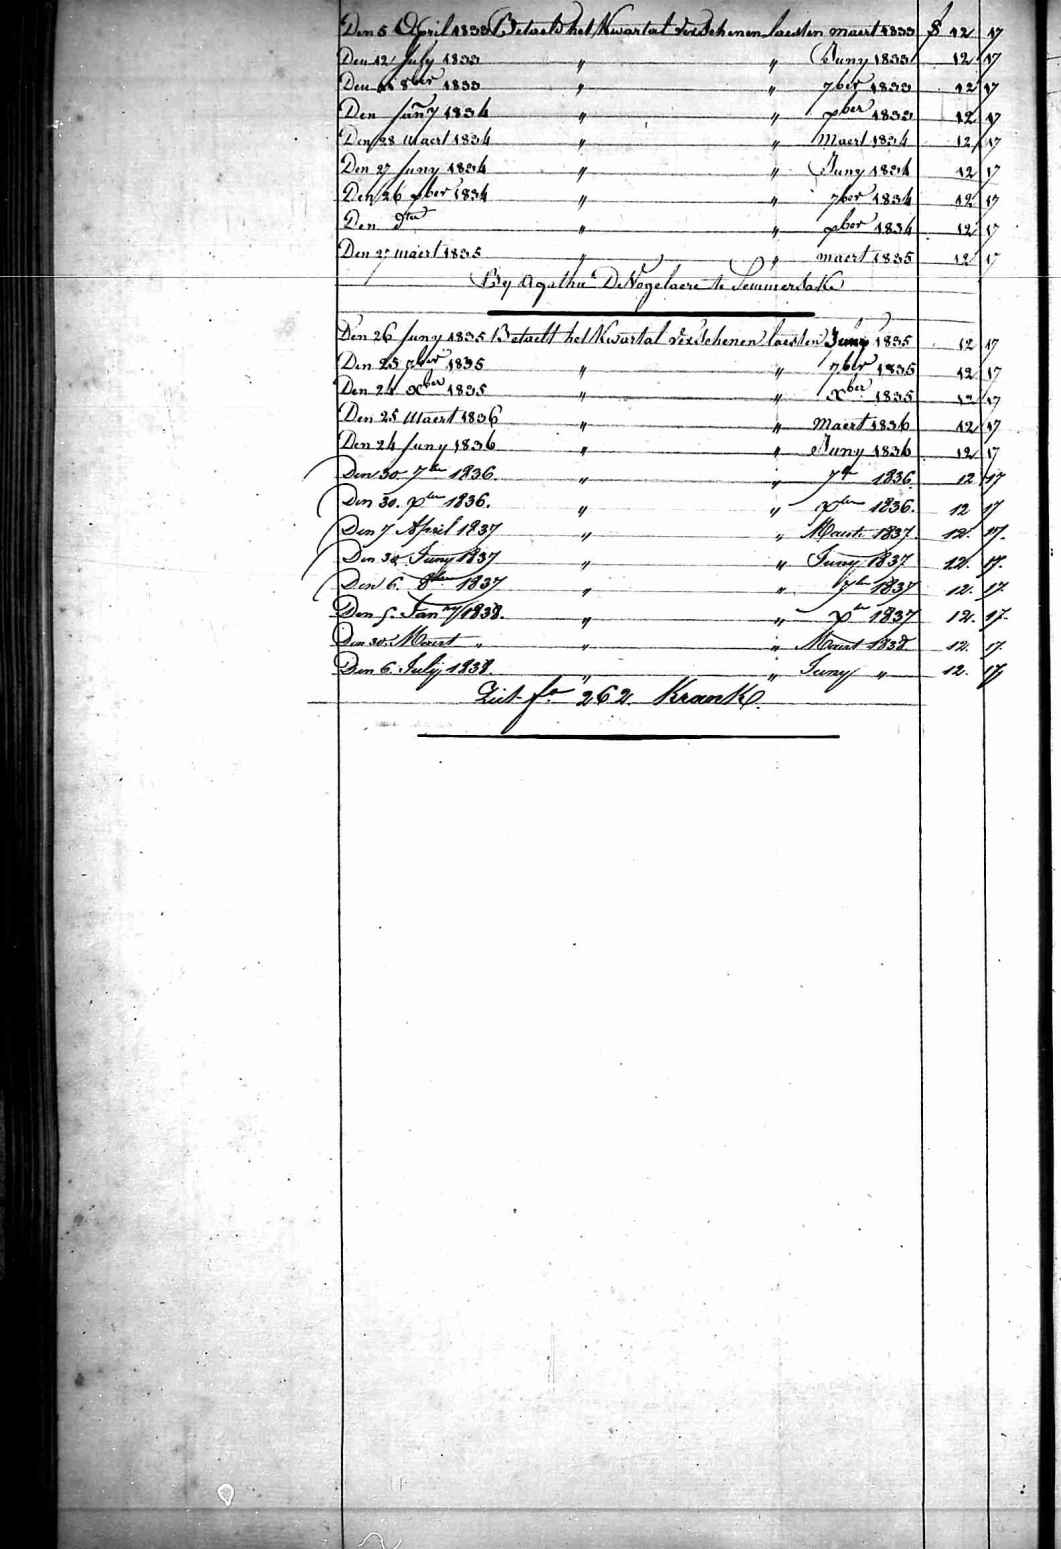 Den 5 April 1833 Betaeld het Kwartal verschenen laesten maert 1833 f 12 17
Den 12 July 1833 " " Juny 1833 12 17
Den 8ber 1833 " " 7ber 1833 12 17
Den Jany 1834 " " xber 1833 12 17
Den 28 Maert 1834 " " Maert 1834 12 17
Den 27 Juny 1834 " " Juny 1834 12 17
Den 26 1834 " " 7ber 1834 12 17
Den " " xber 1834 12 17
Den 27 maert 1835 " " maert 1835 12 17
By Agathe DeVogelaere te Semmersake
Den 26 Juny 1835 Betaelt het Kwartal verschenen laesten Juny 1835 12 17
Den 25 7ber 1835 " " 7ber 1835 12 17
Den 24 xber 1835 " " xber 1835 12 17
Den 25 Maert 1836 " " Maert 1836 12 17
Den 24 Juny 1836 " " Juny 1836 12 17
Den 30 7ber 1836. " " 7br 1836. 12 17
Den 30. xber 1836. " " xber 1836. 12 17
Den 7 April 1837 " " Maert 1837. 12. 17.
Den 30 Juny 1837 " " Juny 1837 12. 17.
Den 6. 8ber 1837 " " 7br 1837 12. 17.
Den 5. Jany 1838. " " xbr 1837 12. 17.
Den 30. Maert " " " Maert 1838 12. 17.
Den 6. July 1838. " " Juny " 12. 17
Ziet fo 262. Krank.